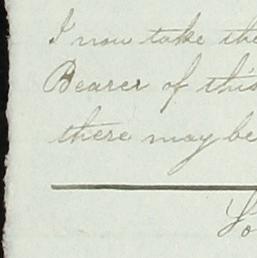 I now take the
Bearer of this
there may be